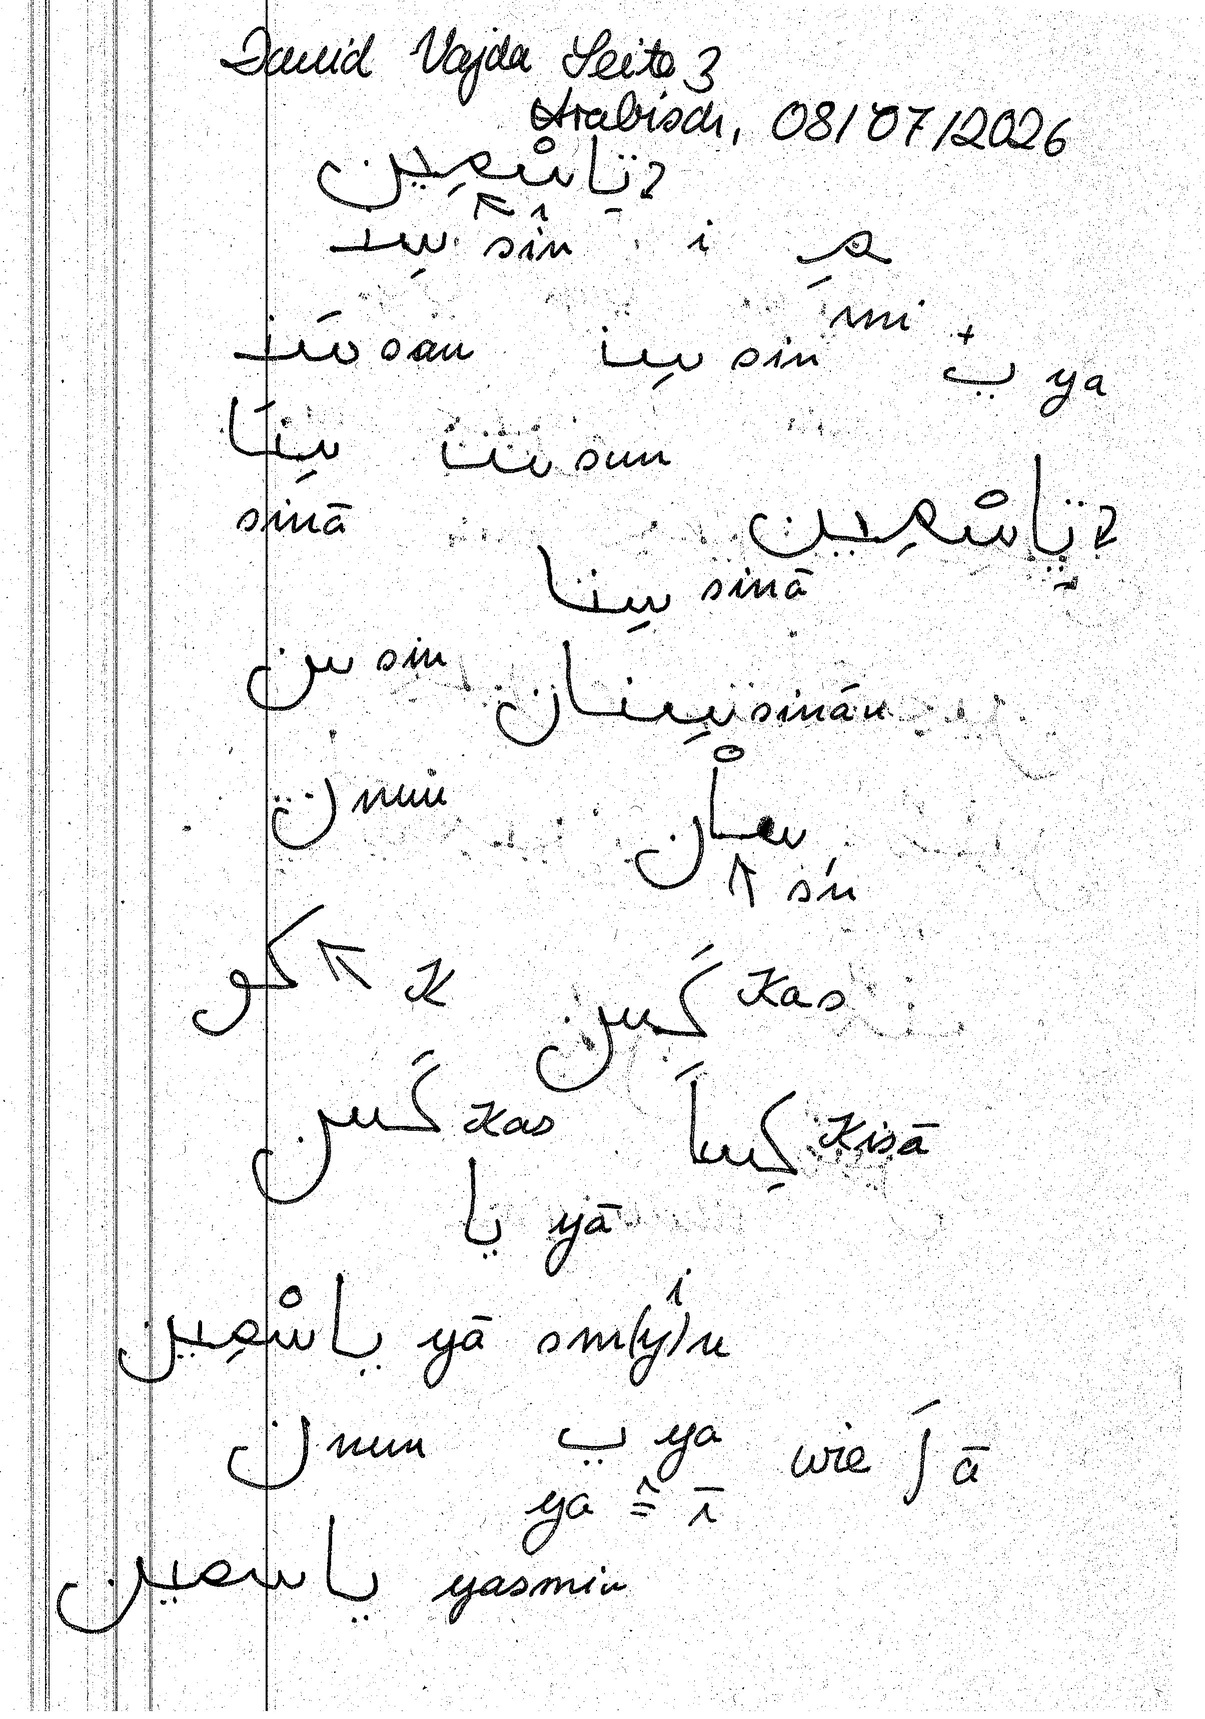 David Vajda Seite 3
Arabisch, 08/07/2026
ياسْمِين
سِنـ sin i مِـ
mi
سَنـ san سِنـ sin يـ ya
سِنَا سُنـ sun
sinā ياسْمِين
سِنا sinā
سن sin
سِنان sinán
ن nun
sn
كو K كَسن Kas
كَسن Kas كِساَ Kisā
يا yā
i
ياسْمِين yā sm(y)n
ن nun يـ ya wie اَ ā
ya ≙ ī
ياسمين yasmin